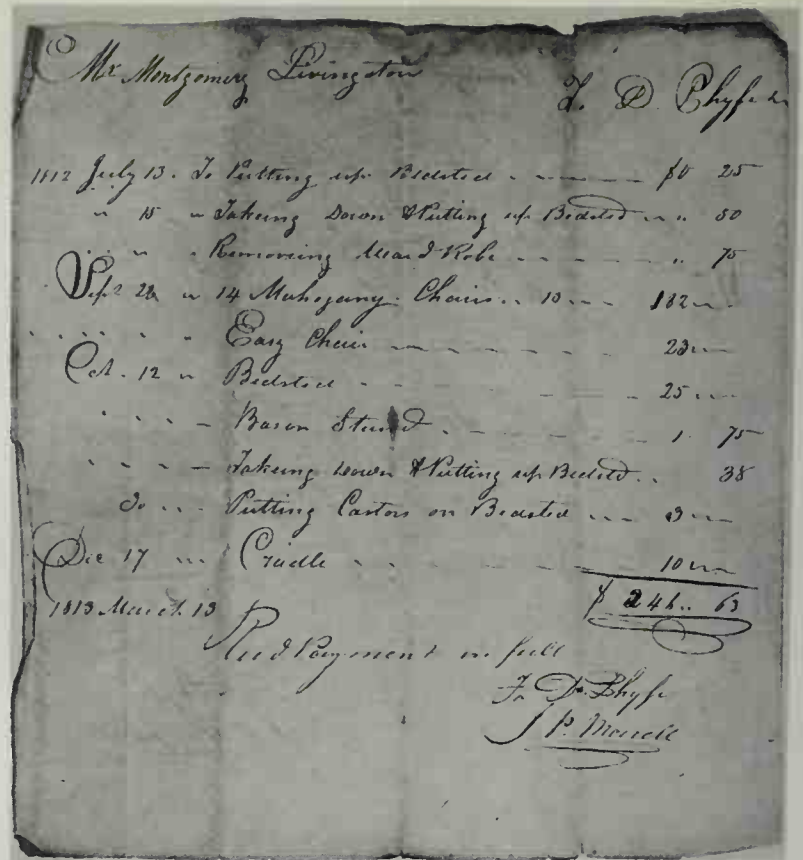 Mr Montgomery Livingston
To D Phyfe Dr
1812 July 13. To Putting up Bedsted $0 25
" 15 " Takeing Down & Putting up Bedsted " 50
" " " Removing Ward Robe " 75
Sept " 14 Mahogany Chairs 13 182
Easy Chair 23
Oct. 12 " Bedsted 25
Bason Stand 1 75
Takeing Down & Putting up Bedsted 38
Do Putting Castors on Bedsted 3
Dec 17 " Cradle 10
$ 246 63
1813 March 13
Recd Payment in full
For D. Phyfe